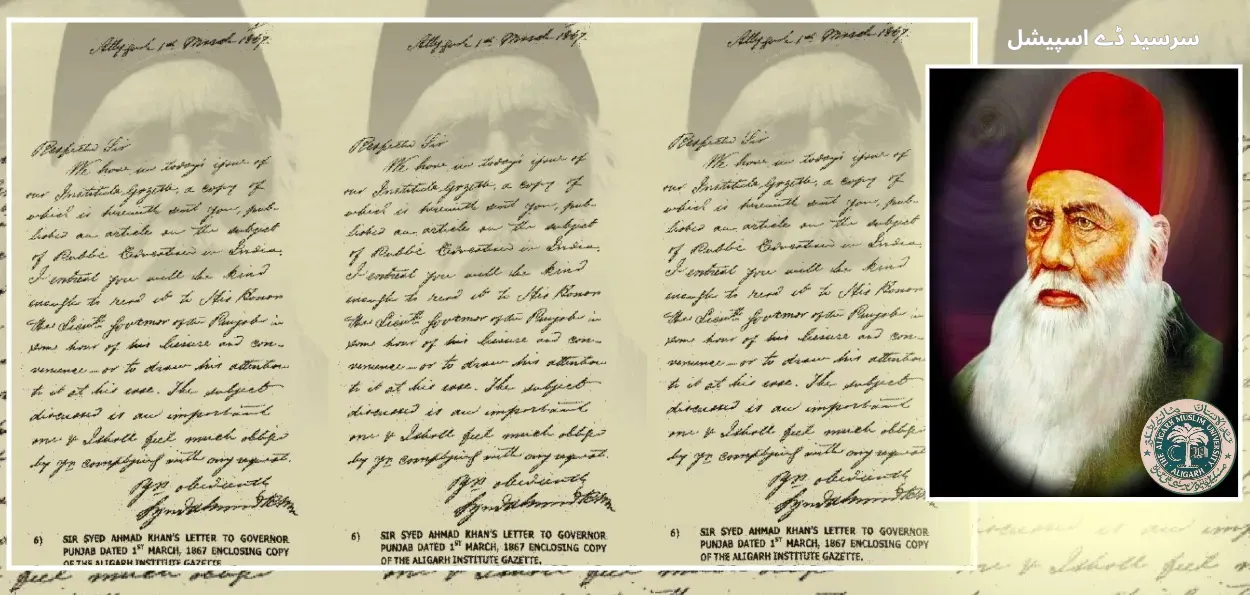 سرسید ڈے اسپیشل
Allygurh 1st March 1867.
Respected Sir
We have in today's issue of
our Institute Gazette, a copy of
which is herewith sent you, pub-
lished an article on the subject
of Public Education in India.
I entreat you will be kind
enough to read it to His Honor
the Lieutt. Governor of the Punjab in
some hour of his leisure and con-
venience — or to draw his attention
to it at his ease. The subject
discussed is an important
one & I shall feel much oblige
by yr complying with my request.
Yrs obediently
Syed Ahmad Khan
6) SIR SYED AHMAD KHAN'S LETTER TO GOVERNOR
PUNJAB DATED 1ST MARCH, 1867 ENCLOSING COPY
OF THE ALIGARH INSTITUTE GAZETTE.
Allygurh 1st March 1867.
Respected Sir
We have in today's issue of
our Institute Gazette, a copy of
which is herewith sent you, pub-
lished an article on the subject
of Public Education in India.
I entreat you will be kind
enough to read it to His Honor
the Lieutt. Governor of the Punjab in
some hour of his leisure and con-
venience — or to draw his attention
to it at his ease. The subject
discussed is an important
one & I shall feel much oblige
by yr complying with my request.
Yrs obediently
Syed Ahmad Khan
6) SIR SYED AHMAD KHAN'S LETTER TO GOVERNOR
PUNJAB DATED 1ST MARCH, 1867 ENCLOSING COPY
OF THE ALIGARH INSTITUTE GAZETTE.
Allygurh 1st March 1867.
Respected Sir
We have in today's issue of
our Institute Gazette, a copy of
which is herewith sent you, pub-
lished an article on the subject
of Public Education in India.
I entreat you will be kind
enough to read it to His Honor
the Lieutt. Governor of the Punjab in
some hour of his leisure and con-
venience — or to draw his attention
to it at his ease. The subject
discussed is an important
one & I shall feel much oblige
by yr complying with my request.
Yrs obediently
Syed Ahmad Khan
6) SIR SYED AHMAD KHAN'S LETTER TO GOVERNOR
PUNJAB DATED 1ST MARCH, 1867 ENCLOSING COPY
OF THE ALIGARH INSTITUTE GAZETTE.
THE ALIGARH MUSLIM UNIVERSITY
ALIGARH
feel much oblige
one & I shall feel much